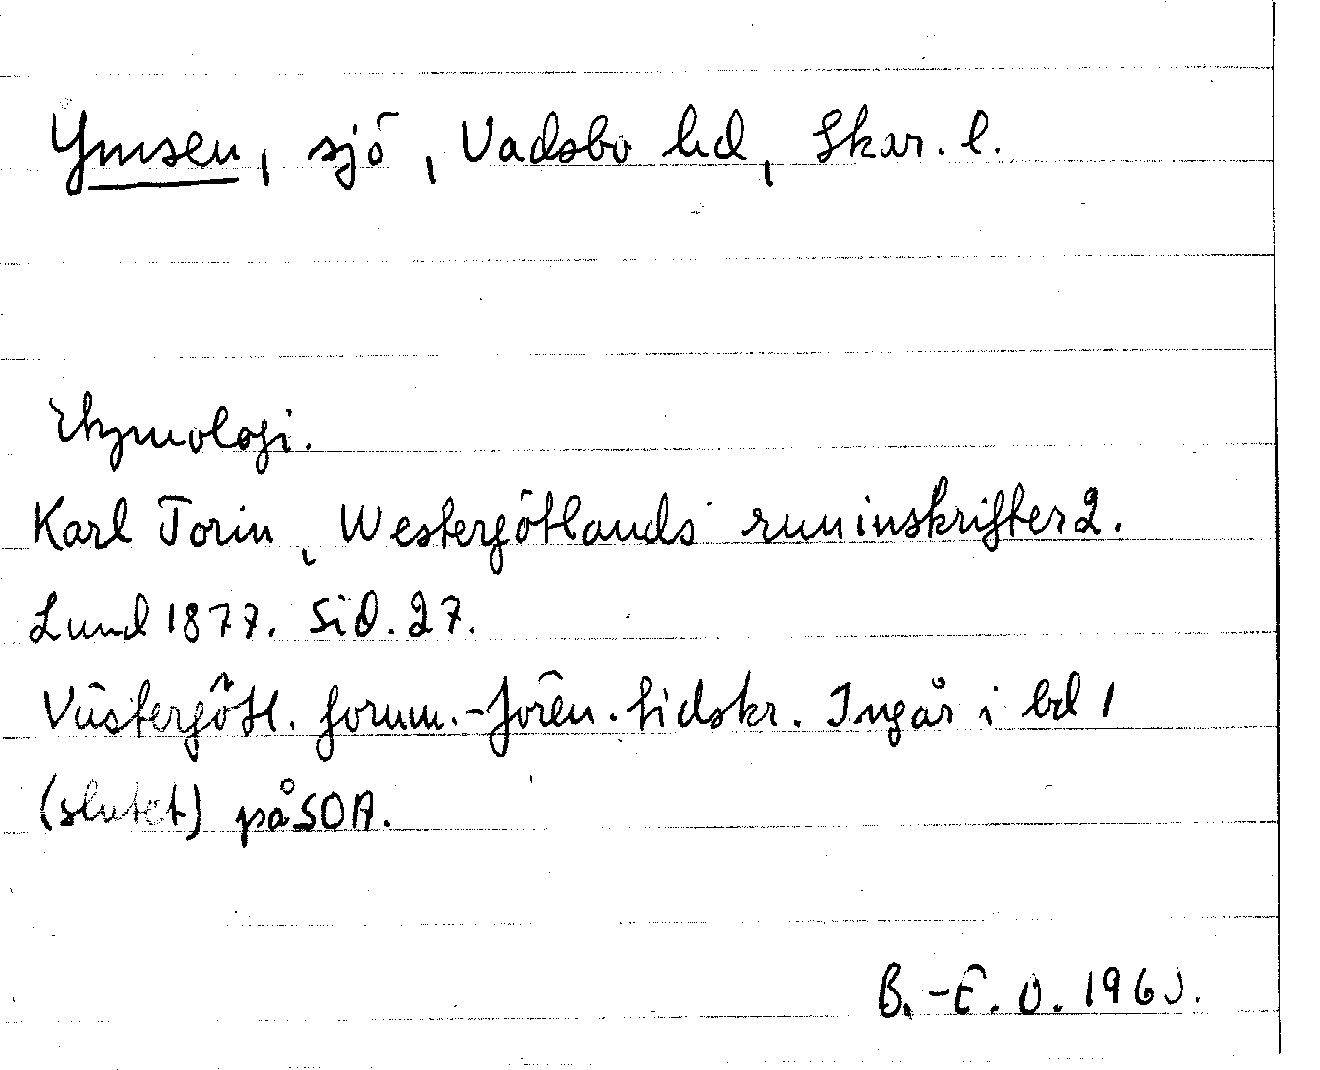 Ymsen, sjö, Vadsbo hd, Skar. l.
Etymologi.
Karl Torin, Westergötlands runinskrifter 2.
Lund 1877. Sid. 27.
Västergötl. fornm.-fören. tidskr. Ingår i bd 1
(slutet) på SOA.
B.-E. O. 1960.